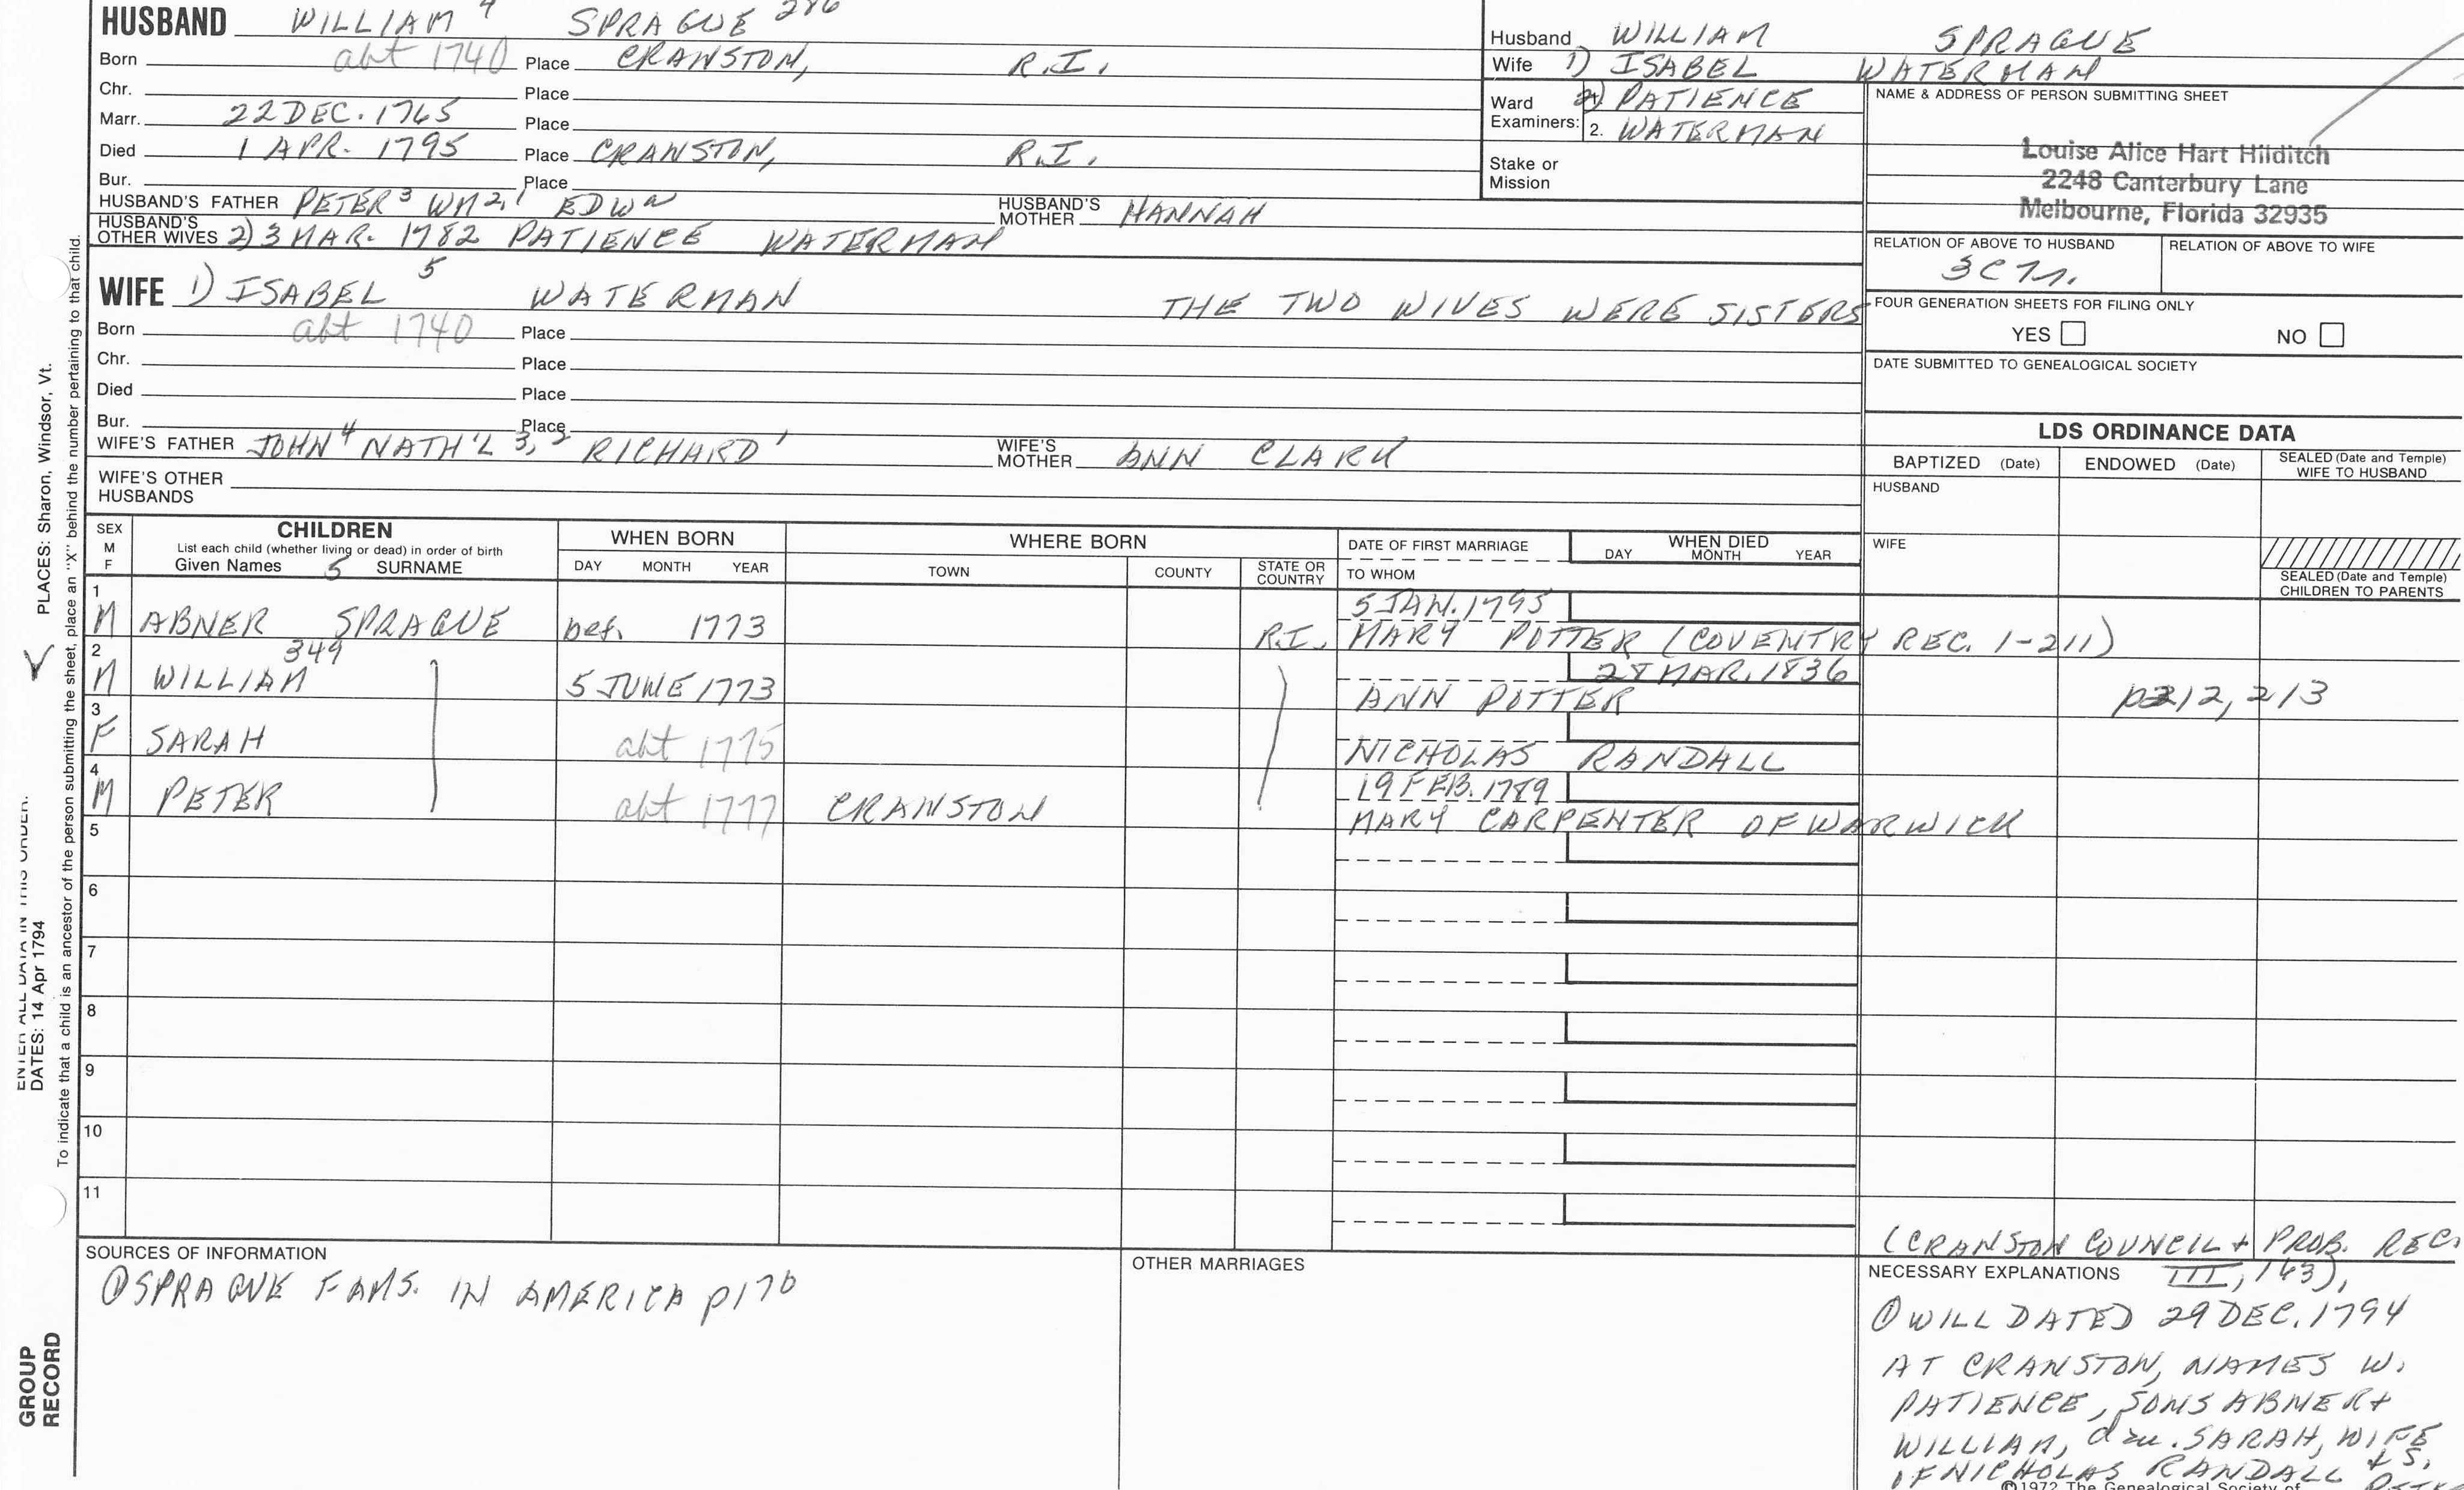 HUSBAND WILLIAM 4 SPRAGUE 286
Born abt 1740 Place CRANSTON, R.I.
Chr. Place
Marr. 22 DEC. 1765 Place
Died 1 APR. 1795 Place CRANSTON, R.I.
Bur. Place
HUSBAND'S FATHER PETER 3 WM 2, 1 EDWN HUSBAND'S MOTHER HANNAH
HUSBAND'S OTHER WIVES 2) 3 MAR. 1782 PATIENCE WATERMAN
WIFE 1) ISABEL 5 WATERMAN THE TWO WIVES WERE SISTERS
Born abt 1740 Place
Chr. Place
Died Place
Bur. Place
WIFE'S FATHER JOHN 4 NATH'L 3, 2 RICHARD 1 WIFE'S MOTHER ANN CLARK
WIFE'S OTHER HUSBANDS
Husband WILLIAM SPRAGUE
Wife 1) ISABEL WATERMAN
Ward 2) PATIENCE
Examiners: 2. WATERMAN
Stake or Mission
NAME & ADDRESS OF PERSON SUBMITTING SHEET
Louise Alice Hart Hilditch
2248 Canterbury Lane
Melbourne, Florida 32935
RELATION OF ABOVE TO HUSBAND RELATION OF ABOVE TO WIFE
FOUR GENERATION SHEETS FOR FILING ONLY
YES NO
DATE SUBMITTED TO GENEALOGICAL SOCIETY
LDS ORDINANCE DATA
BAPTIZED (Date) ENDOWED (Date) SEALED (Date and Temple) WIFE TO HUSBAND
HUSBAND
WIFE
SEALED (Date and Temple) CHILDREN TO PARENTS
SEX M F CHILDREN WHEN BORN WHERE BORN DATE OF FIRST MARRIAGE WHEN DIED
List each child (whether living or dead) in order of birth
Given Names 5 SURNAME DAY MONTH YEAR TOWN COUNTY STATE OR COUNTRY TO WHOM DAY MONTH YEAR
1 5 JAN. 1795
M ABNER SPRAGUE bef. 1773 R.I. MARY POTTER (COVENTRY REC. 1-211)
2 349 28 MAR. 1836
M WILLIAM 5 JUNE 1773 ANN POTTER p212, 213
3
F SARAH abt 1775 NICHOLAS RANDALL
4 19 FEB. 1789
M PETER abt 1777 CRANSTON MARY CARPENTER OF WARWICK
5
6
7
8
9
10
11
SOURCES OF INFORMATION
① SPRAGUE FAMS. IN AMERICA p170
OTHER MARRIAGES
(CRANSTON COUNCIL + PROB. REC.
NECESSARY EXPLANATIONS III, 163),
① WILL DATED 29 DEC. 1794
AT CRANSTON, NAMES W.
PATIENCE, SONS ABNER +
WILLIAM, dau. SARAH, WIFE
OF NICHOLAS RANDALL + S.
©1972 The Genealogical Society of
PLACES: Sharon, Windsor, Vt.
ENTER ALL DATA IN THIS ORDER:
DATES: 14 Apr 1794
To indicate that a child is an ancestor of the person submitting the sheet, place an "X" behind the number pertaining to that child.
GROUP
RECORD